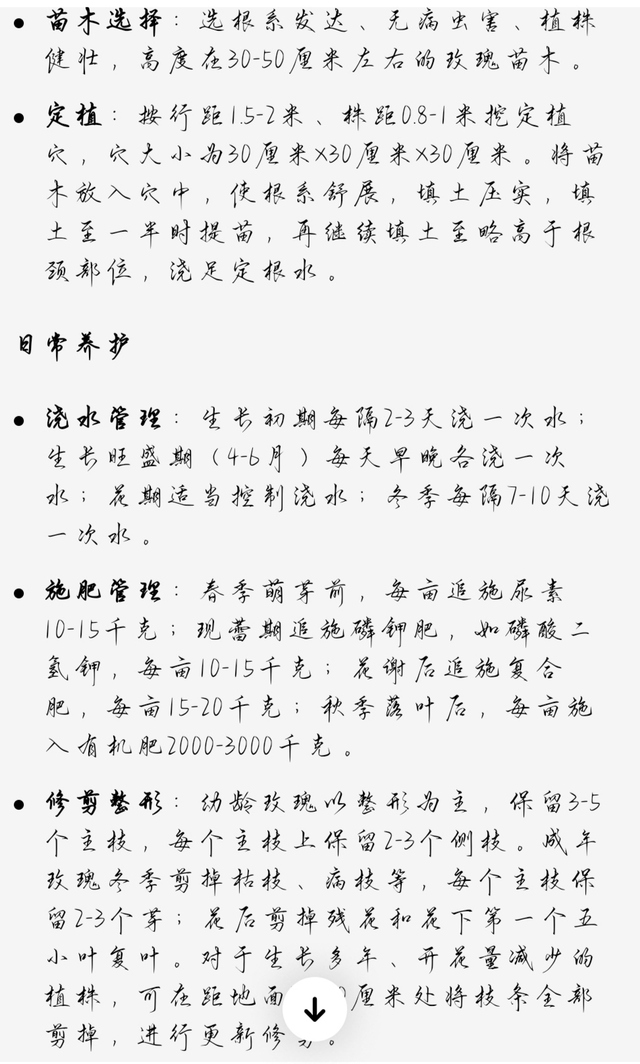 • 苗木选择：选根系发达、无病虫害、植株
健壮，高度在30-50厘米左右的玫瑰苗木。
• 定植：按行距1.5-2米、株距0.8-1米挖定植
穴，穴大小为30厘米×30厘米×30厘米。将苗
木放入穴中，使根系舒展，填土压实，填
土至一半时提苗，再继续填土至略高于根
颈部位，浇足定根水。
日常养护
• 浇水管理：生长初期每隔2-3天浇一次水；
生长旺盛期（4-6月）每天早晚各浇一次
水；花期适当控制浇水；冬季每隔7-10天浇
一次水。
• 施肥管理：春季萌芽前，每亩追施尿素
10-15千克；现蕾期追施磷钾肥，如磷酸二
氢钾，每亩10-15千克；花谢后追施复合
肥，每亩15-20千克；秋季落叶后，每亩施
入有机肥2000-3000千克。
• 修剪整形：幼龄玫瑰以整形为主，保留3-5
个主枝，每个主枝上保留2-3个侧枝。成年
玫瑰冬季剪掉枯枝、病枝等，每个主枝保
留2-3个芽；花后剪掉残花和花下第一个五
小叶复叶。对于生长多年、开花量减少的
植株，可在距地面 厘米处将枝条全部
剪掉，进行更新修 。